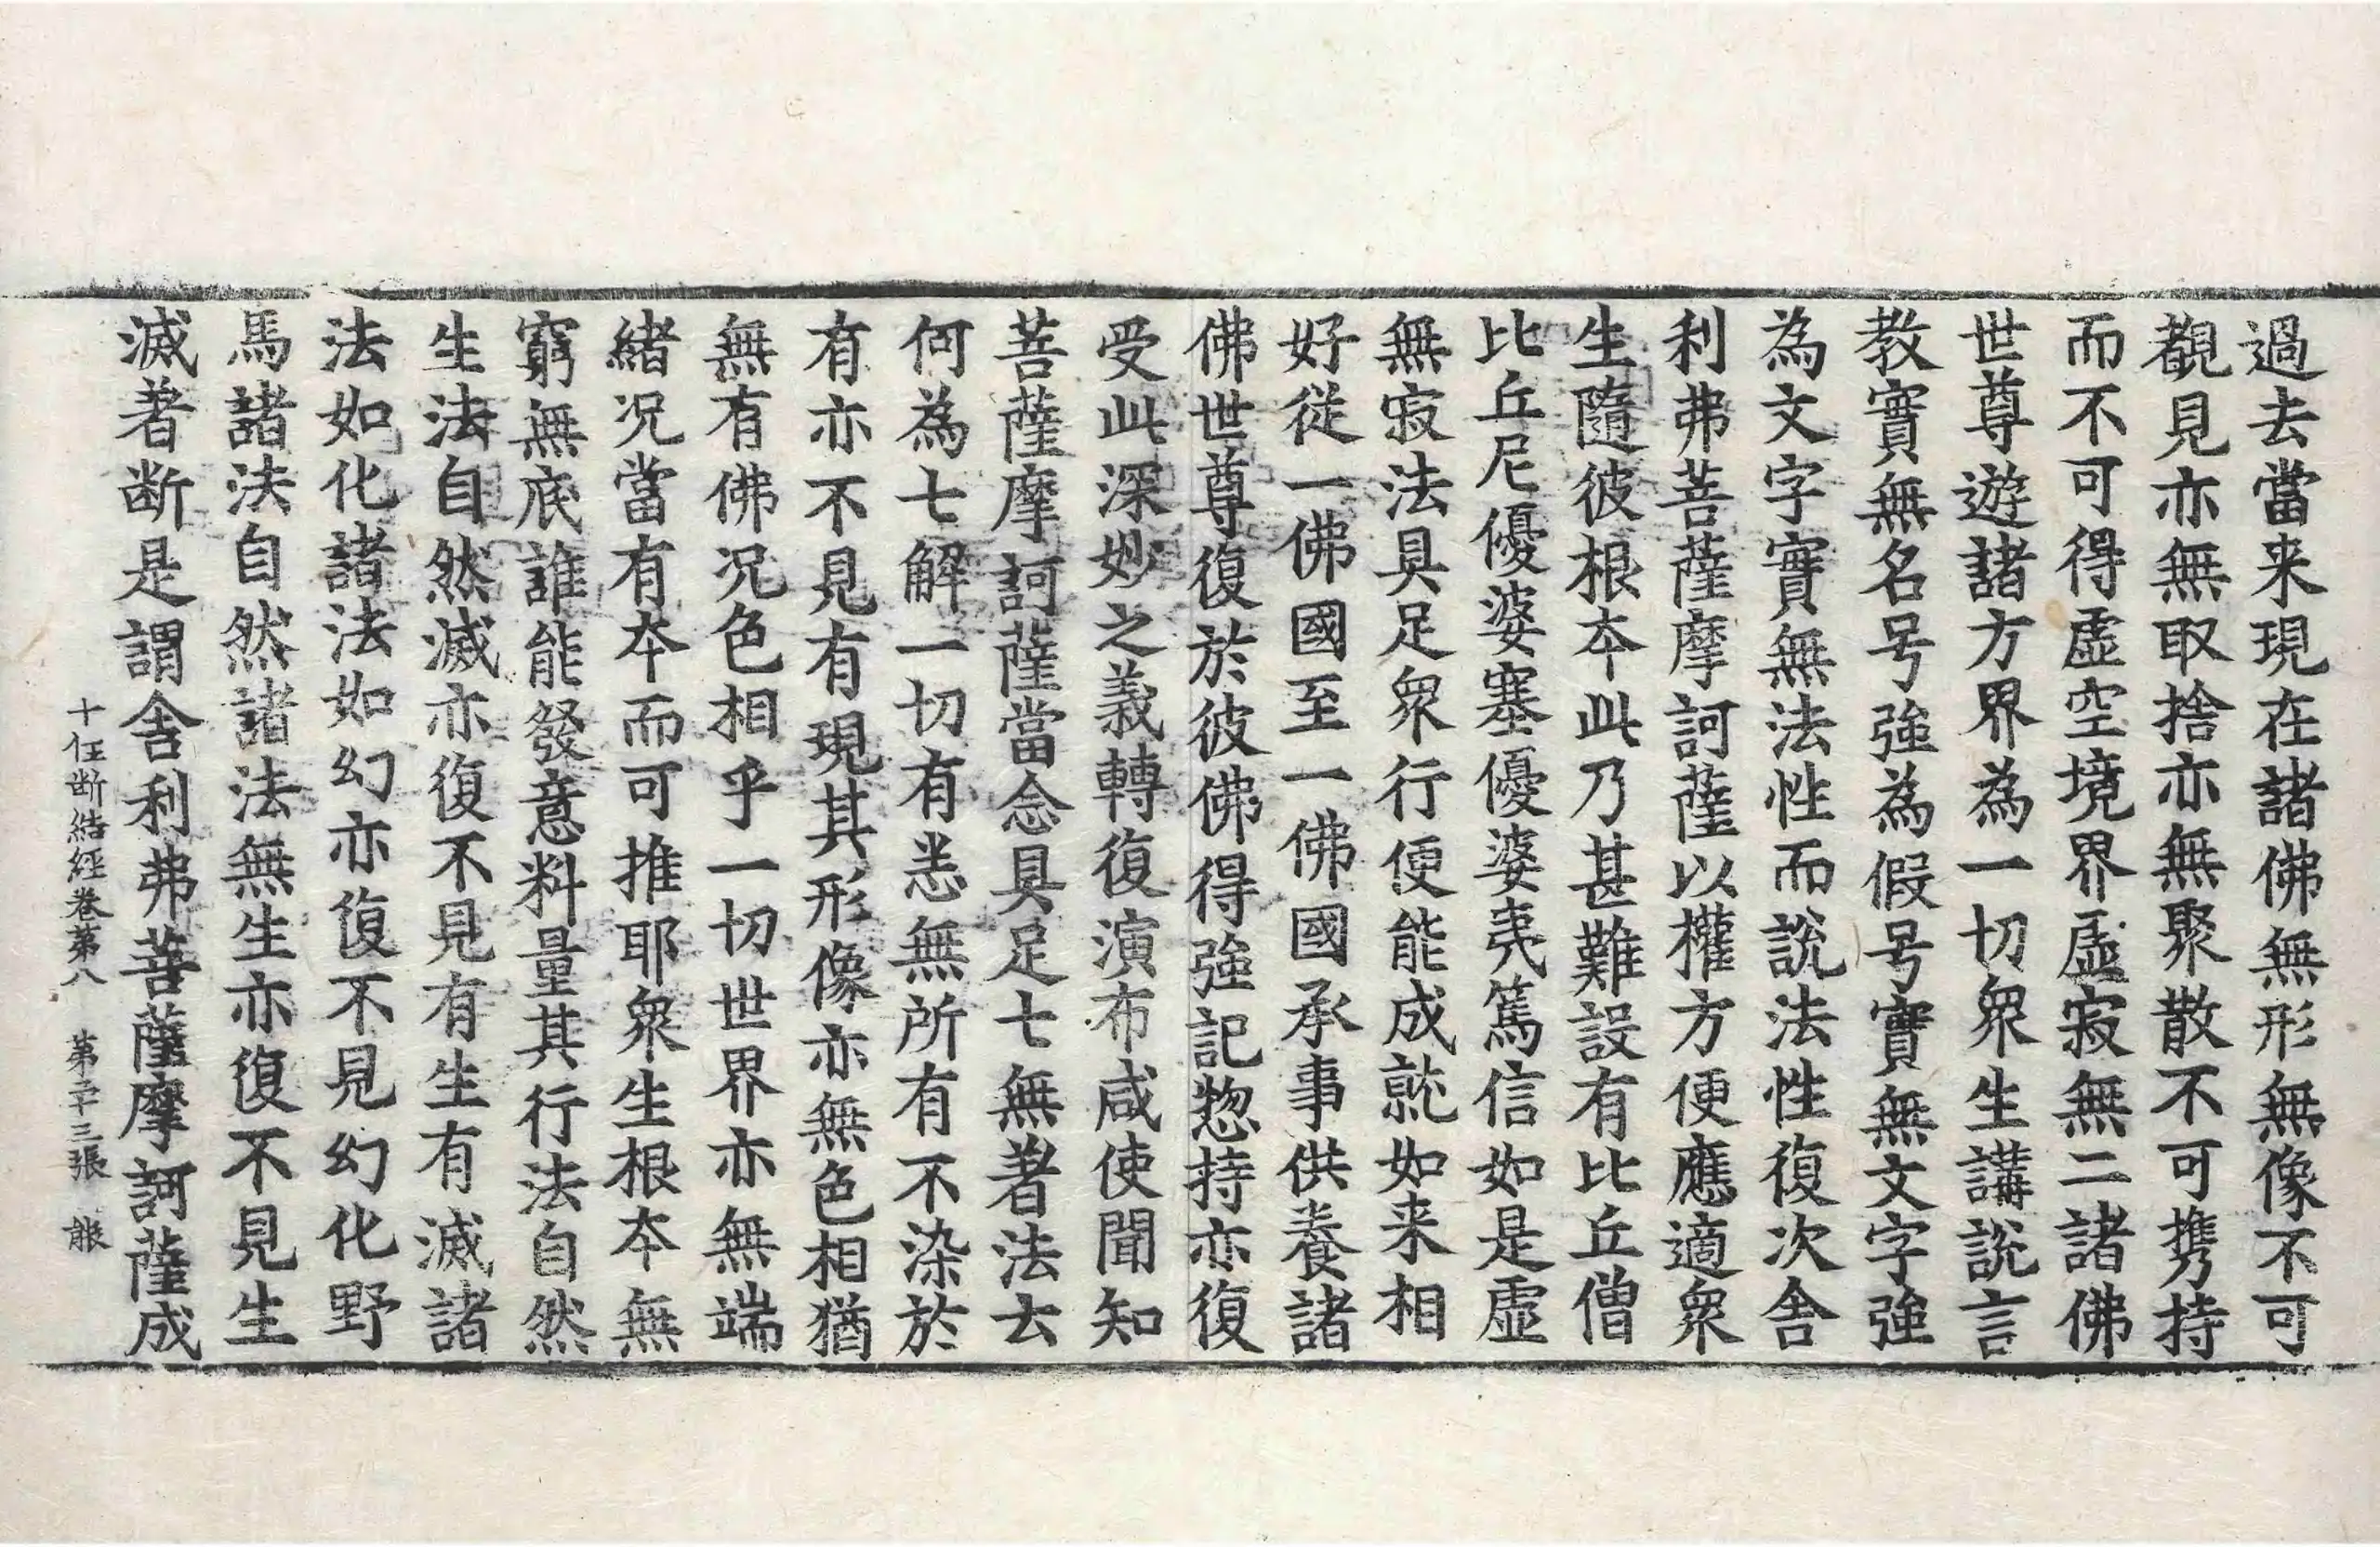 過去當来現在諸佛無形無像不可
覩見亦無取捨亦無聚散不可携持
而不可得虛空境界虛寂無二諸佛
世尊遊諸方界為一切衆生講說言
教實無名号強為假号實無文字強
為文字實無法性而說法性復次舍
利弗菩薩摩訶薩以權方便應適衆
生隨彼根本此乃甚難設有比丘僧
比丘尼優婆塞優婆夷篤信如是虛
無寂法具足衆行便能成就如来相
好從一佛國至一佛國承事供養諸
佛世尊復於彼佛得強記惣持亦復
受此深妙之義轉復演布咸使聞知
菩薩摩訶薩當念具足七無著法云
何為七解一切有悉無所有不染於
有亦不見有現其形像亦無色相猶
無有佛况色相乎一切世界亦無端
緒况當有本而可推耶衆生根本無
窮無底誰能發意料量其行法自然
生法自然滅亦復不見有生有滅諸
法如化諸法如幻亦復不見幻化野
馬諸法自然諸法無生亦復不見生
滅著断是謂舍利弗菩薩摩訶薩成
十住断結經卷第八　第二十三張　賬